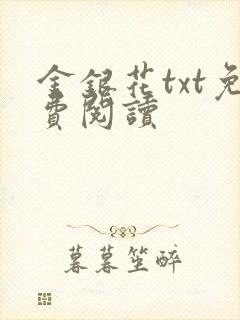 金銀花txt免
費閱讀
暮暮笙醉